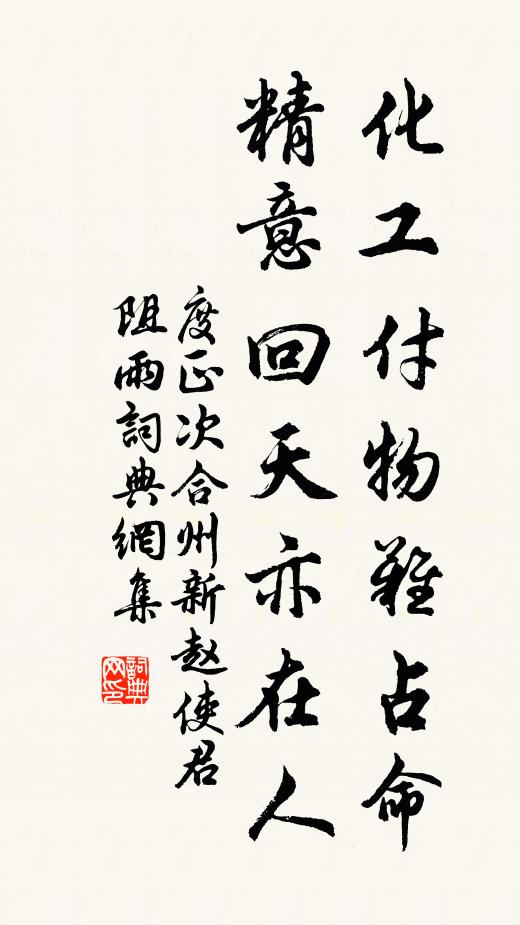 化工付物難占命
精意回天亦在人
度正次合州新赵使君
阻雨詞典網集
詞典网印